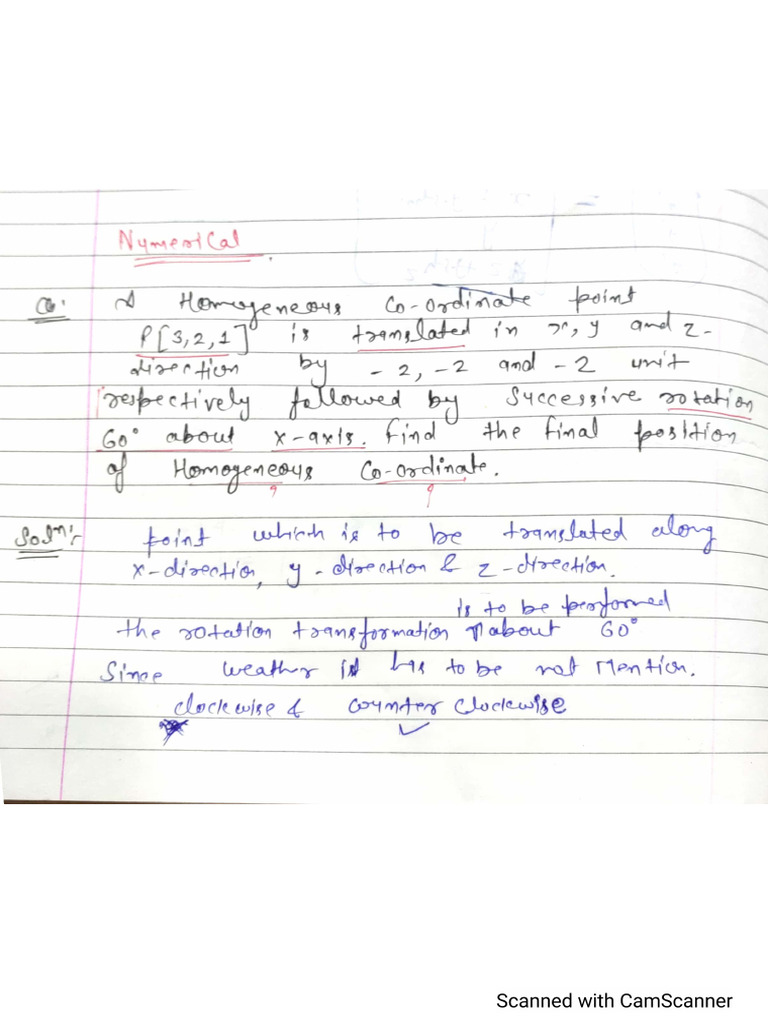 Numerical
Q: A Homogeneous Co-ordinate point
P[3,2,1] is translated in x, y and z-
direction by -2, -2 and -2 unit
respectively followed by successive rotation
60° about x-axis. Find the final position
of Homogeneous Co-ordinate.
Solⁿ:- point which is to be translated along
x-direction, y-direction & z-direction.
is to be performed
the rotation transformation about 60°
Since weather it has to be not mention.
clockwise & counter clockwise
Scanned with CamScanner